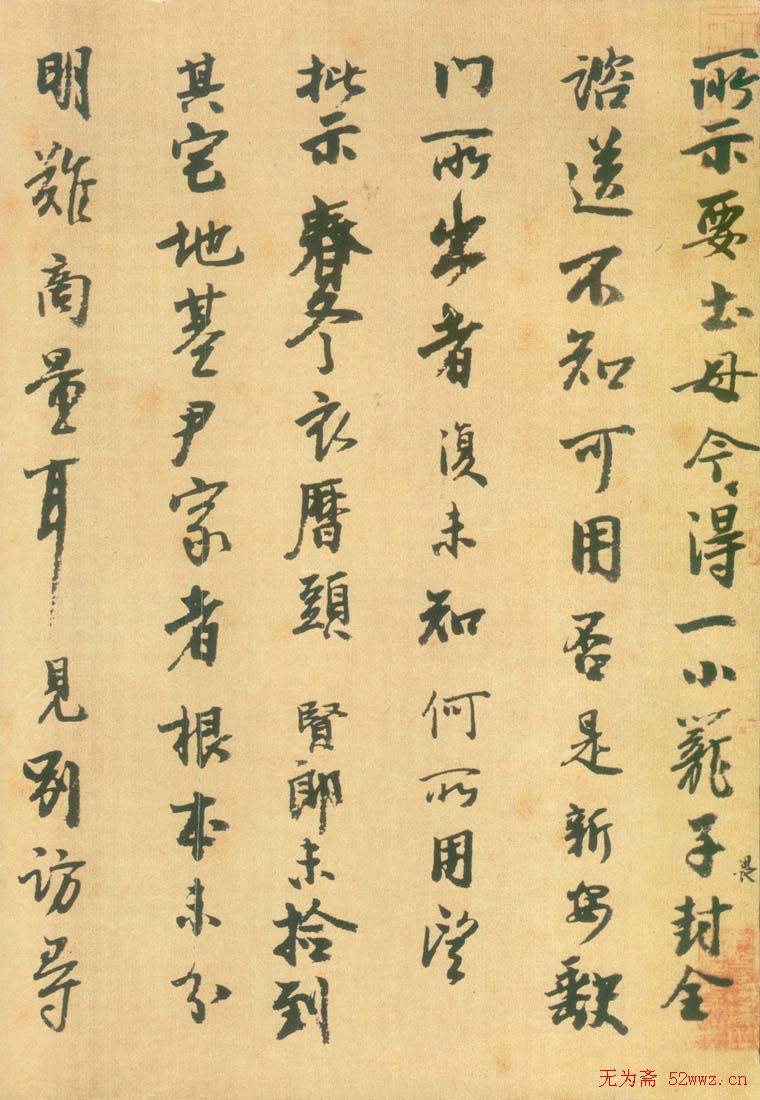 所示要土母今得一小籠子封全
諮送不知可用否是新安缺
門所出者復未知何所用望
批示春冬衣曆頭賢郎未捡到
其宅地基尹家者根本未分
明難商量耳見別訪尋
无为斋 52wwz.cn